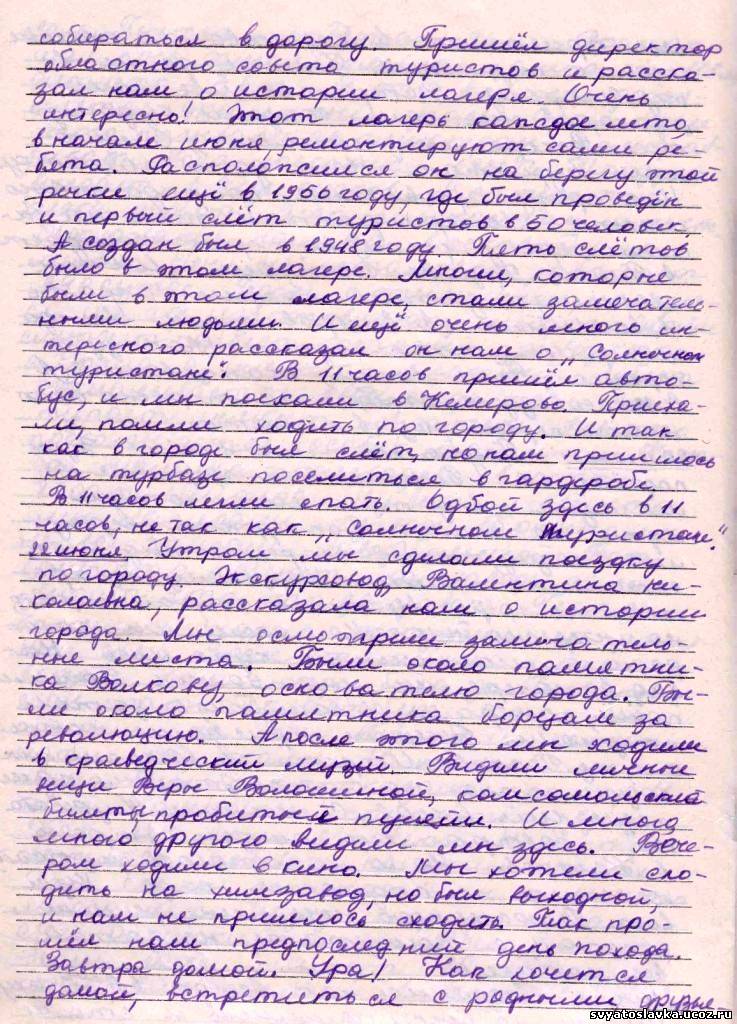 собираться в дорогу. Пришёл директор
областного совета туристов и расска-
зал нам о истории лагеря. Очень
интересно! Этот лагерь каждое лето,
в начале июня, ремонтируют сами ре-
бята. Расположился он на берегу этой
речки ещё в 1956 году, где был проведён
и первый слёт туристов в 50 человек.
А создан был в 1948 году. Пять слётов
было в этом лагере. Многие, которые
были в этом лагере, стали замечатель-
ными людьми. И ещё очень много ин-
тересного рассказал он нам о „Солнечном
туристане". В 11 часов пришёл авто-
бус, и мы поехали в Кемерово. Приеха-
ли, пошли ходить по городу. И так
как в городе был слёт, то нам пришлось
на турбазе поселиться в гардеробе.
В 11 часов легли спать. Отбой здесь в 11
часов, не так как „Солнечном туристане."
22 июня. Утром мы сделали поездку
по городу. Экскурсовод, Валентина Ни-
колаевна, рассказала нам о истории
города. Мы осмотрели замечатель-
ные места. Были около памятни-
ка Волкову, основателю города. Бы-
ли около памятника борцам за
революцию. А после этого мы ходили
в краеведческий музей. Видели личные
вещи Веры Волошиной, комсомольский
билет, пробитый пулями. И много
много другого видели мы здесь. Вече-
ром ходили в кино. Мы хотели схо-
дить на химзавод, но был выходной,
и нам не пришлось сходить. Так про-
шёл наш предпоследний день похода.
Завтра домой. Ура! Как хочется
домой, встретиться с родными друзья-
svyatoslavka.ucoz.ru